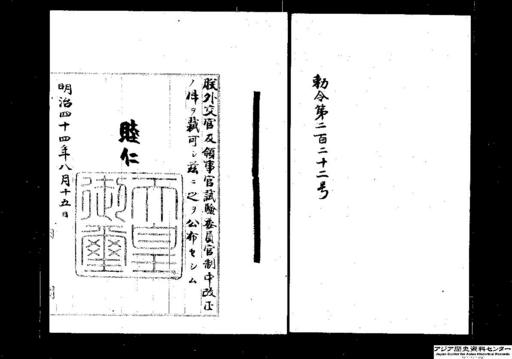 勅令第二百二十二号
朕外交官及領事官試験委員官制中改正
ノ件ヲ裁可シ茲ニ之ヲ公布セシム
睦仁
天皇
御璽
明治四十四年八月十五日
アジア歴史資料センター
Japan Center for Asian Historical Records